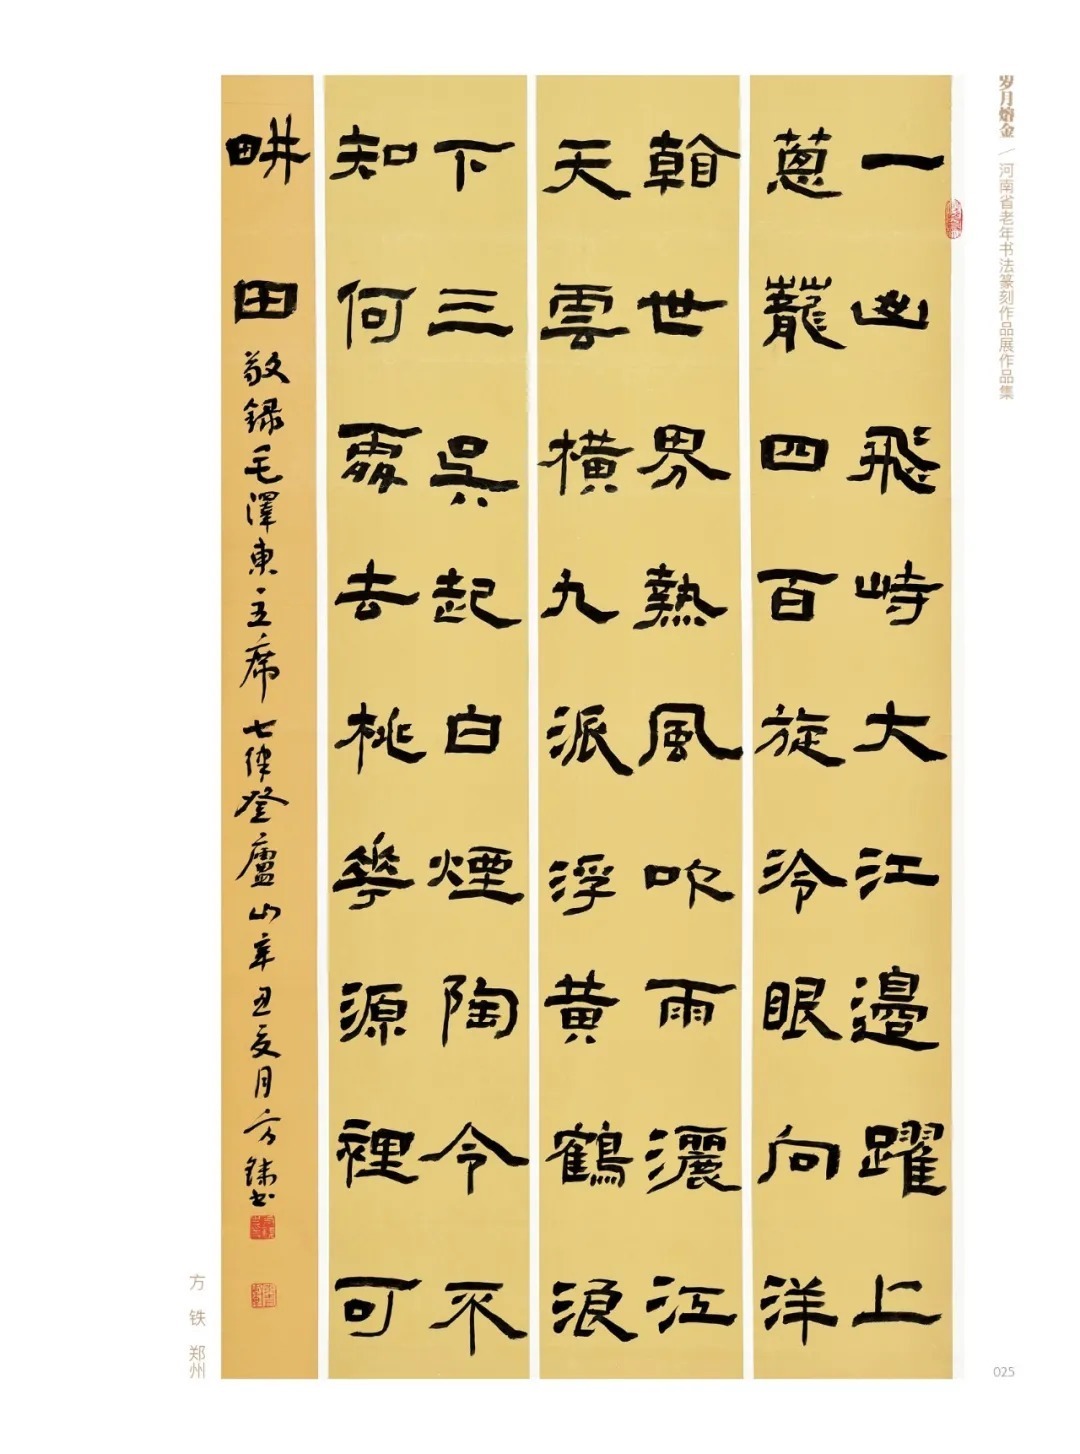 岁月熔金／河南省老年书法篆刻作品展作品集
一山飛峙大江邊躍上
蔥蘢四百旋泠眼向洋
看世界熱風吹雨灑江
天雲橫九派浮黃鶴浪
下三吳起白煙陶令不
知何處去桃花源裡可
畊田
敬録毛澤東主席七律登廬山辛丑夏月方鐵書
方 铁 郑州
025